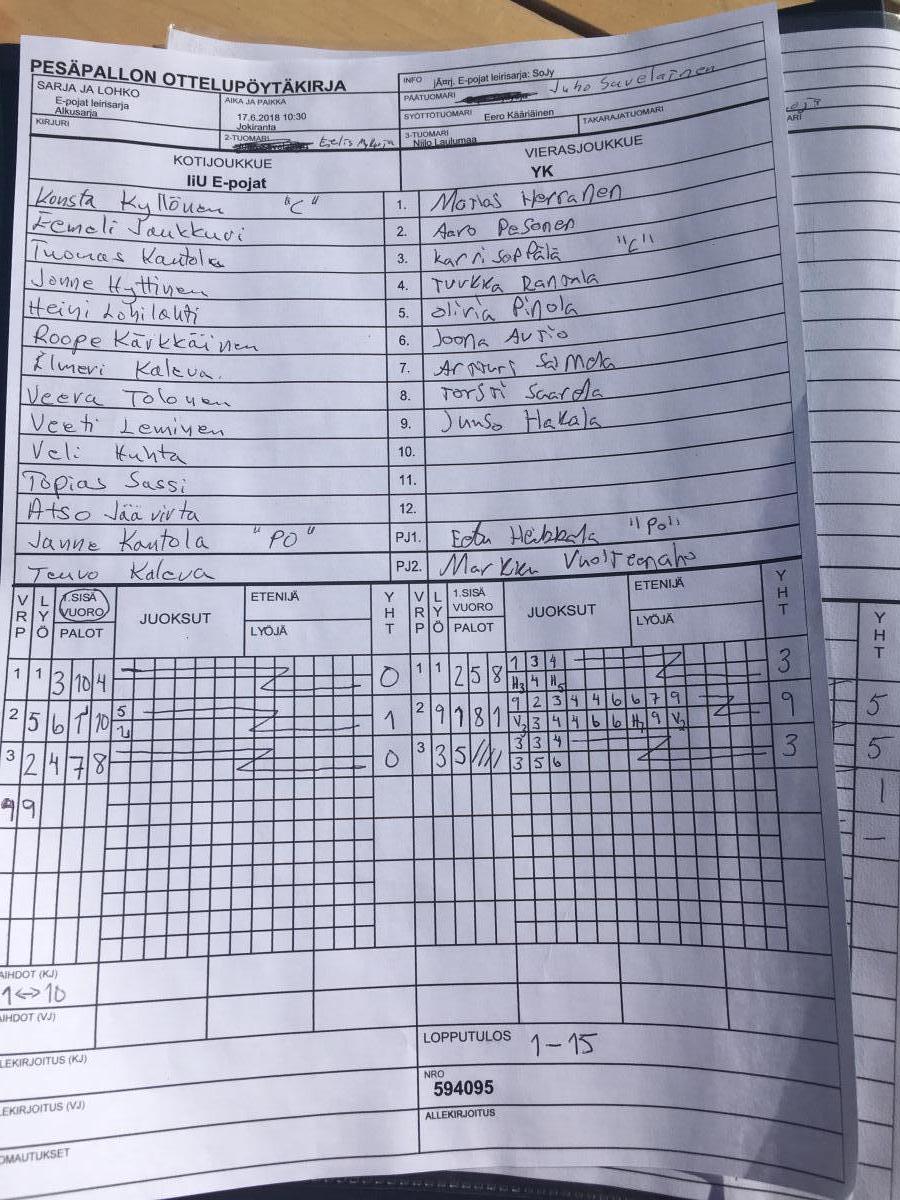 PESÄPALLON OTTELUPÖYTÄKIRJA
SARJA JA LOHKO
E-pojat leirisarja
Alkusarja
AIKA JA PAIKKA
17.6.2018 10:30
Jokiranta
INFO jÄ¤rj. E-pojat leirisarja: SoJy
PÄÄTUOMARI Juho Savelainen
SYÖTTÖTUOMARI Eero Kääriäinen
TAKARAJATUOMARI
KIRJURI
2-TUOMARI Eelis
3-TUOMARI Niilo Laulumaa
KOTIJOUKKUE
IiU E-pojat
VIERASJOUKKUE
YK
Konsta Kyllönen "C" 1. Herranen
Eemeli Jaukkuri 2. Aaro Pesonen
Tuomas Kantola 3. Karri Seppälä "C"
Jonne Hyttinen 4. Turkka Rannala
Heini Lohilahti 5. Olivia Pinola
Roope Kärkkäinen 6. Joona
Elmeri Kaleva. 7. Artturi
Veera Tolonen 8. Torsti Saarela
Veeti Leminen 9. Juuso Hakala
Veli Huhta 10.
Topias Sassi 11.
Atso Jäävirta 12.
Janne Kantola "PO" PJ1. Eetu Heikkala "PO"
Teuvo Kaleva PJ2. Markku Vuolteenaho
VRP LYÖ 1.SISÄ VUORO PALOT JUOKSUT ETENIJÄ LYÖJÄ YHT VRP LYÖ 1.SISÄ VUORO PALOT JUOKSUT ETENIJÄ LYÖJÄ YHT
1 1 3 10 4 0 1 1 2 5 8 1 3 4 3
H3 4 H5
2 5 6 1 10 5 1 2 9 1 8 1 9 2 3 4 4 6 6 7 9 9
2 V3 3 4 4 6 6 H7 9 V2
3 2 4 7 8 0 3 3 5 3 3 4 3
3 5 6
9 9
AIHDOT (KJ)
1 ↔ 10
AIHDOT (VJ)
LEKIRJOITUS (KJ)
LOPPUTULOS 1 – 15
NRO
594095
LEKIRJOITUS (VJ)
ALLEKIRJOITUS
OMAUTUKSET
YHT
5
5
1
ARI